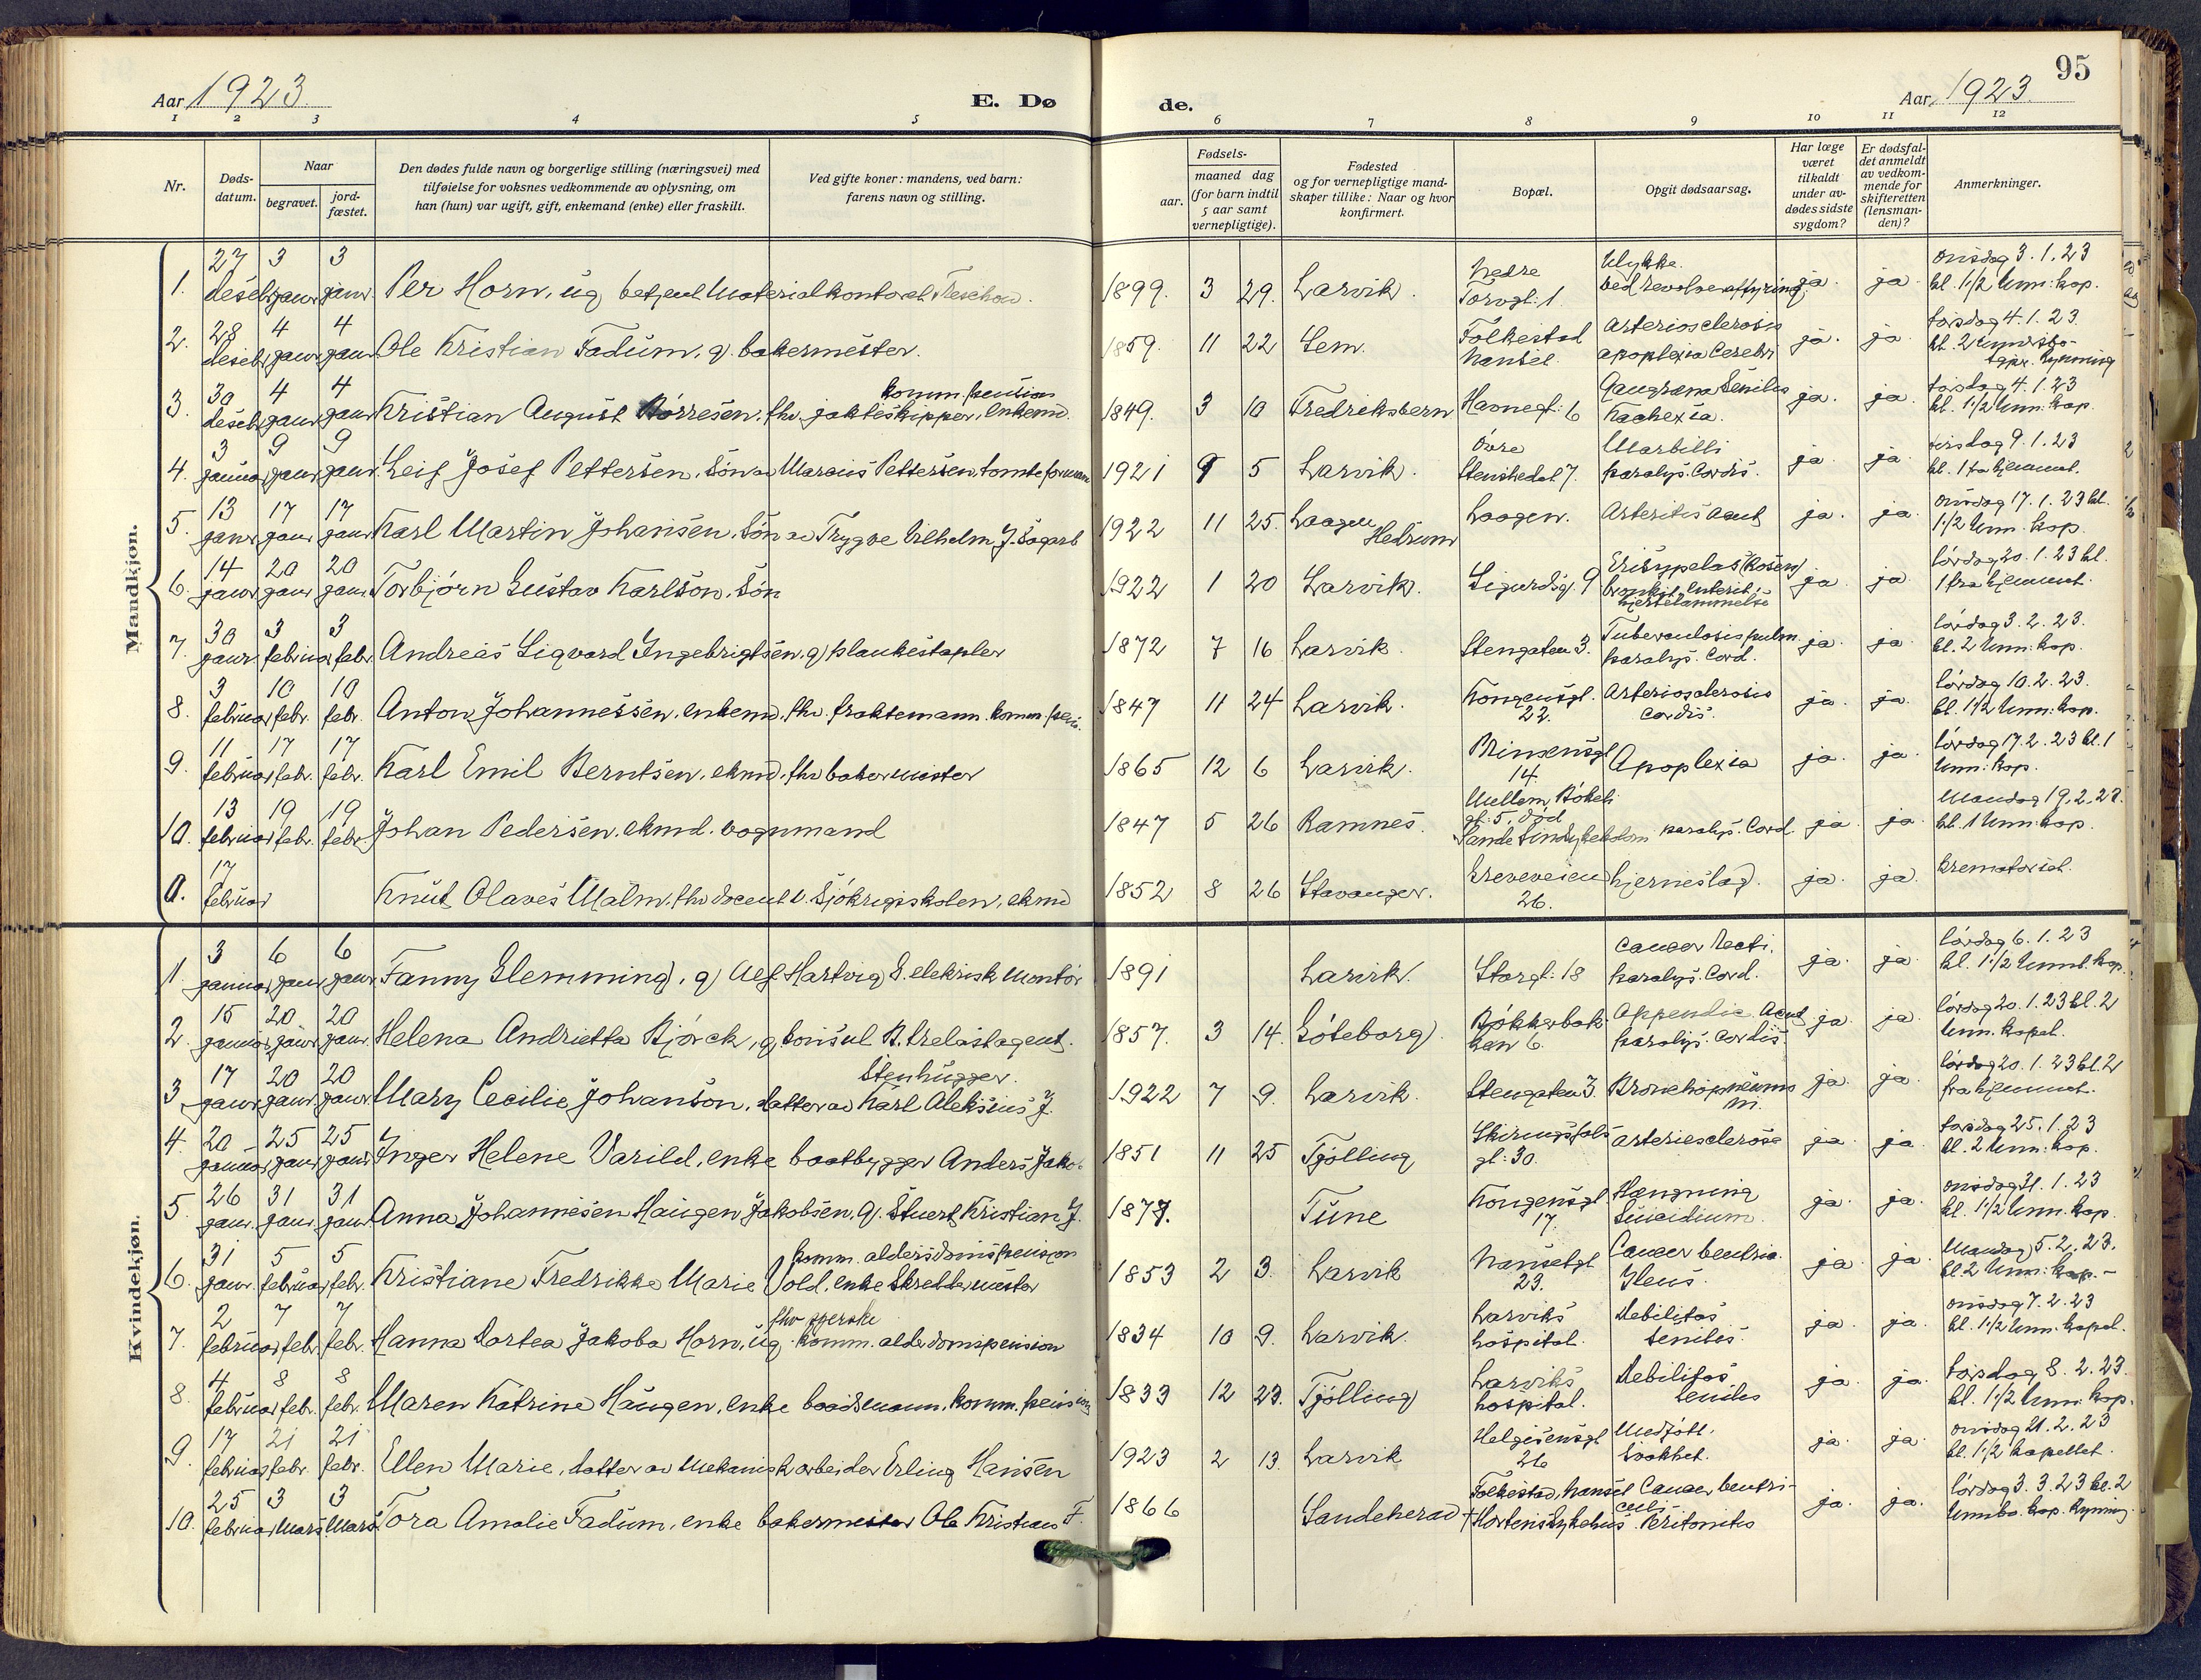 95
Aar 1923. E. Dø de. Aar 1923.
1 2 3 4 5 6 7 8 9 10 11 12
Nr. Døds-datum. Naar begravet. jord-fæstet. Den dødes fulde navn og borgerlige stilling (næringsvei) med tilføielse for voksnes vedkommende av oplysning, om han (hun) var ugift, gift, enkemand (enke) eller fraskilt. Ved gifte koner: mandens, ved barn: farens navn og stilling. aar. Fødsels- maaned dag (for barn indtil 5 aar samt vernepligtige). Fødested og for vernepligtige mandskaper tillike: Naar og hvor konfirmert. Bopæl. Opgit dødsaarsag. Har læge været tilkaldt under avdødes sidste sygdom? Er dødsfaldet anmeldt av vedkommende for skifteretten (lensmanden)? Anmerkninger.
Mandkjøn.
1. 27 desebr 3 januar 3 januar Per Horn, ug betjent Materialkontoret Treschow. 1899. 3 29. Larvik. Nedre Torvgt: 1. Ulykke. ved revolveraffyring. ja. ja. onsdag 3.1.23 kl. 1 1/2 Unn: kap.
2. 28 desebr 4 januar 4 januar Ole Kristian Fadum, g. bakermester. 1859. 11 22 Sem. Folkestad Nanset. Arteriosclerosis apoplexia Cerebri ja. ja. torsdag 4.1.23. kl. 2
3. 30 desebr 4 januar 4 januar Kristian August Børresen, fhv. jakteskipper, enkemd. komm. pension 1849. 3 10 Fredriksvern Havnegt: 6 Gangræna Senilis Kachexia. ja. ja. torsdag 4.1.23 kl. 1 1/2 Unn: kap.
4. 3 januar 9 januar 9 januar Leif Josef Pettersen, søn av Marcus Pettersen, tomteformann 1921 9 5 Larvik. Øvre 7. Morbilli paralys. Cordis. ja ja. tirsdag 9.1.23 kl. 1 fra hjemmet.
5. 13 januar 17 januar 17 januar Karl Martin Johansen. Søn av Trygve Vilhelm J. Sagarb 1922 11 25. Laagen Hedrum Laagen. Arteritis acut ja. ja. onsdag 17.1.23 kl. 1 1/2 Unn. kap.
6. 14 januar 20 januar 20 januar Torbjørn Gustav Karlson, Søn 1922 1 20 Larvik. Sigurdsg. 9 Erisypelas (Rosen) bronkit, enterit, hjertelammelse ja. ja. lørdag 20.1.23 kl. 1 fra hjemmet.
7. 30 januar 3 februar 3 febr Andreas Sigvard Ingebrigtsen, g) plankestapler 1872 7 16 Larvik. Stengaten 3. Tuberculosis pulm. paralys. Cord. ja. ja. lørdag 3.2.23. kl. 2 Unn: kap.
8. 3 februar 10 febr. 10 febr. Anton Johannessen, enkemd. fhv. fraktemann. komm. pens. 1847 11 24 Larvik. Kongensgt. 22. Arteriosclerosis cordis. ja. ja. lørdag 10.2.23. kl. 1 1/2 Unn: kap.
9. 11 februar 17 febr. 17 febr. Karl Emil Berntsen, ekmd. fhv bakermester 1865 12 6 Larvik. Prinsensgt 14. Apoplexia ja. ja. lørdag 17.2.23 kl. 1 Unn: kap.
10. 13 februar 19 febr. 19 febr. Johan Pedersen. ekmd. vognmand 1847 5 26 Ramnes. Mellem Bøkeli gt: 5, død Sande Sindsykehus paralys. Cord. ja. ja. Mandag 19.2.23. kl. 1 Unn: kap.
11. 17 februar Knut Olaves Malm, fhv docent v. Sjøkrigsskolen, ekmd 1852 8 26 Stavanger. Greveveien 26. hjerneslag. ja. ja. krematoriet.
Kvindekjøn.
1 3 januar 6 januar 6 januar Fanny Glemming, g) Alf Hartvig G. elektrisk Montør 1891 Larvik. Storgt: 18 Cancer Recti. paralys. Cord. ja. ja. lørdag 6.1.23 kl. 1 1/2 Unnb. kap.
2. 15 januar 20 januar 20 januar Helena Andrietta Bjørck, g. konsul B. trelastagent. 1857. 3 14. Göteborg) Bøkkerbakken 6. Appendic. Acut paralys. Cordis. ja. ja. lørdag 20.1.23 kl. 2 Unn. kapel.
3 17 januar 20 januar 20 januar Mary Cecilie Johanson, datter av Karl Aleksius J. Stenhugger. 1922 7 9. Larvik. Stengaten 3. Bronchopneumoni. ja. ja. lørdag 20.1.23 kl. 2 fra hjemmet.
4. 20 januar 25 januar 25 januar Inger Helene Varild, enke baatbygger Anders Jakob 1851 11 25 Tjølling Skiringssals gt: 30. Arteriesclerose ja. ja. torsdag 25.1.23 kl. 2 Unn: kap.
5. 26 januar 31 januar 31 januar Anna Johannesen Haugen Jakobsen, g. Stuert Kristian J. 1879. Tune Kongensgt 17. Hængning Suicidium. ja. ja. onsdag 31.1.23 kl. 1 1/2 Unn. kap.
6. 31 januar 5 februar 5 febr. Kristiane Fredrikke Marie Vold, enke Skreddermester komm. aldersdomspension 1853 2 3. Larvik Nansetgt 23. Cancer ventric. Ileus. ja. ja. Mandag 5.2.23. kl. 2 Unn: kap.
7. 2 februar 7 febr. 7 febr. Hanna Dortea Jakoba Horn, ug. komm. alderdomspension 1834 10 9. Larvik. Larviks hospital. Debilitas senilis. ja. ja. onsdag 7.2.23 kl. 1 1/2 Unn: kapel.
8. 4 februar 8 febr. 8 febr. Maren Katrine Haugen, enke baadsmann. komm. pension 1833 12 23. Tjølling) Larviks hospital. Debilitas senilis ja. ja. torsdag 8.2.23. kl. 1 1/2 Unn: kap.
9. 17 februar 21 febr. 21 febr. Ellen Marie, datter av Mekanisk arbeider Erling Hansen 1923 2 13. Larvik Helgesensgt 26 Medfødt Svakhet. ja. ja. onsdag 21.2.23 kl. 1 1/2 kapellet.
10. 25 februar 3 Mars 3 Mars Tora Amalie Fadum, enke bakermester Ole Kristian F. 1866 Sandeherad Folkestad, Nanset † Hortens Sykehus Cancer ventriculi. Peritonitis ja. ja. lørdag 3.3.23 kl. 2